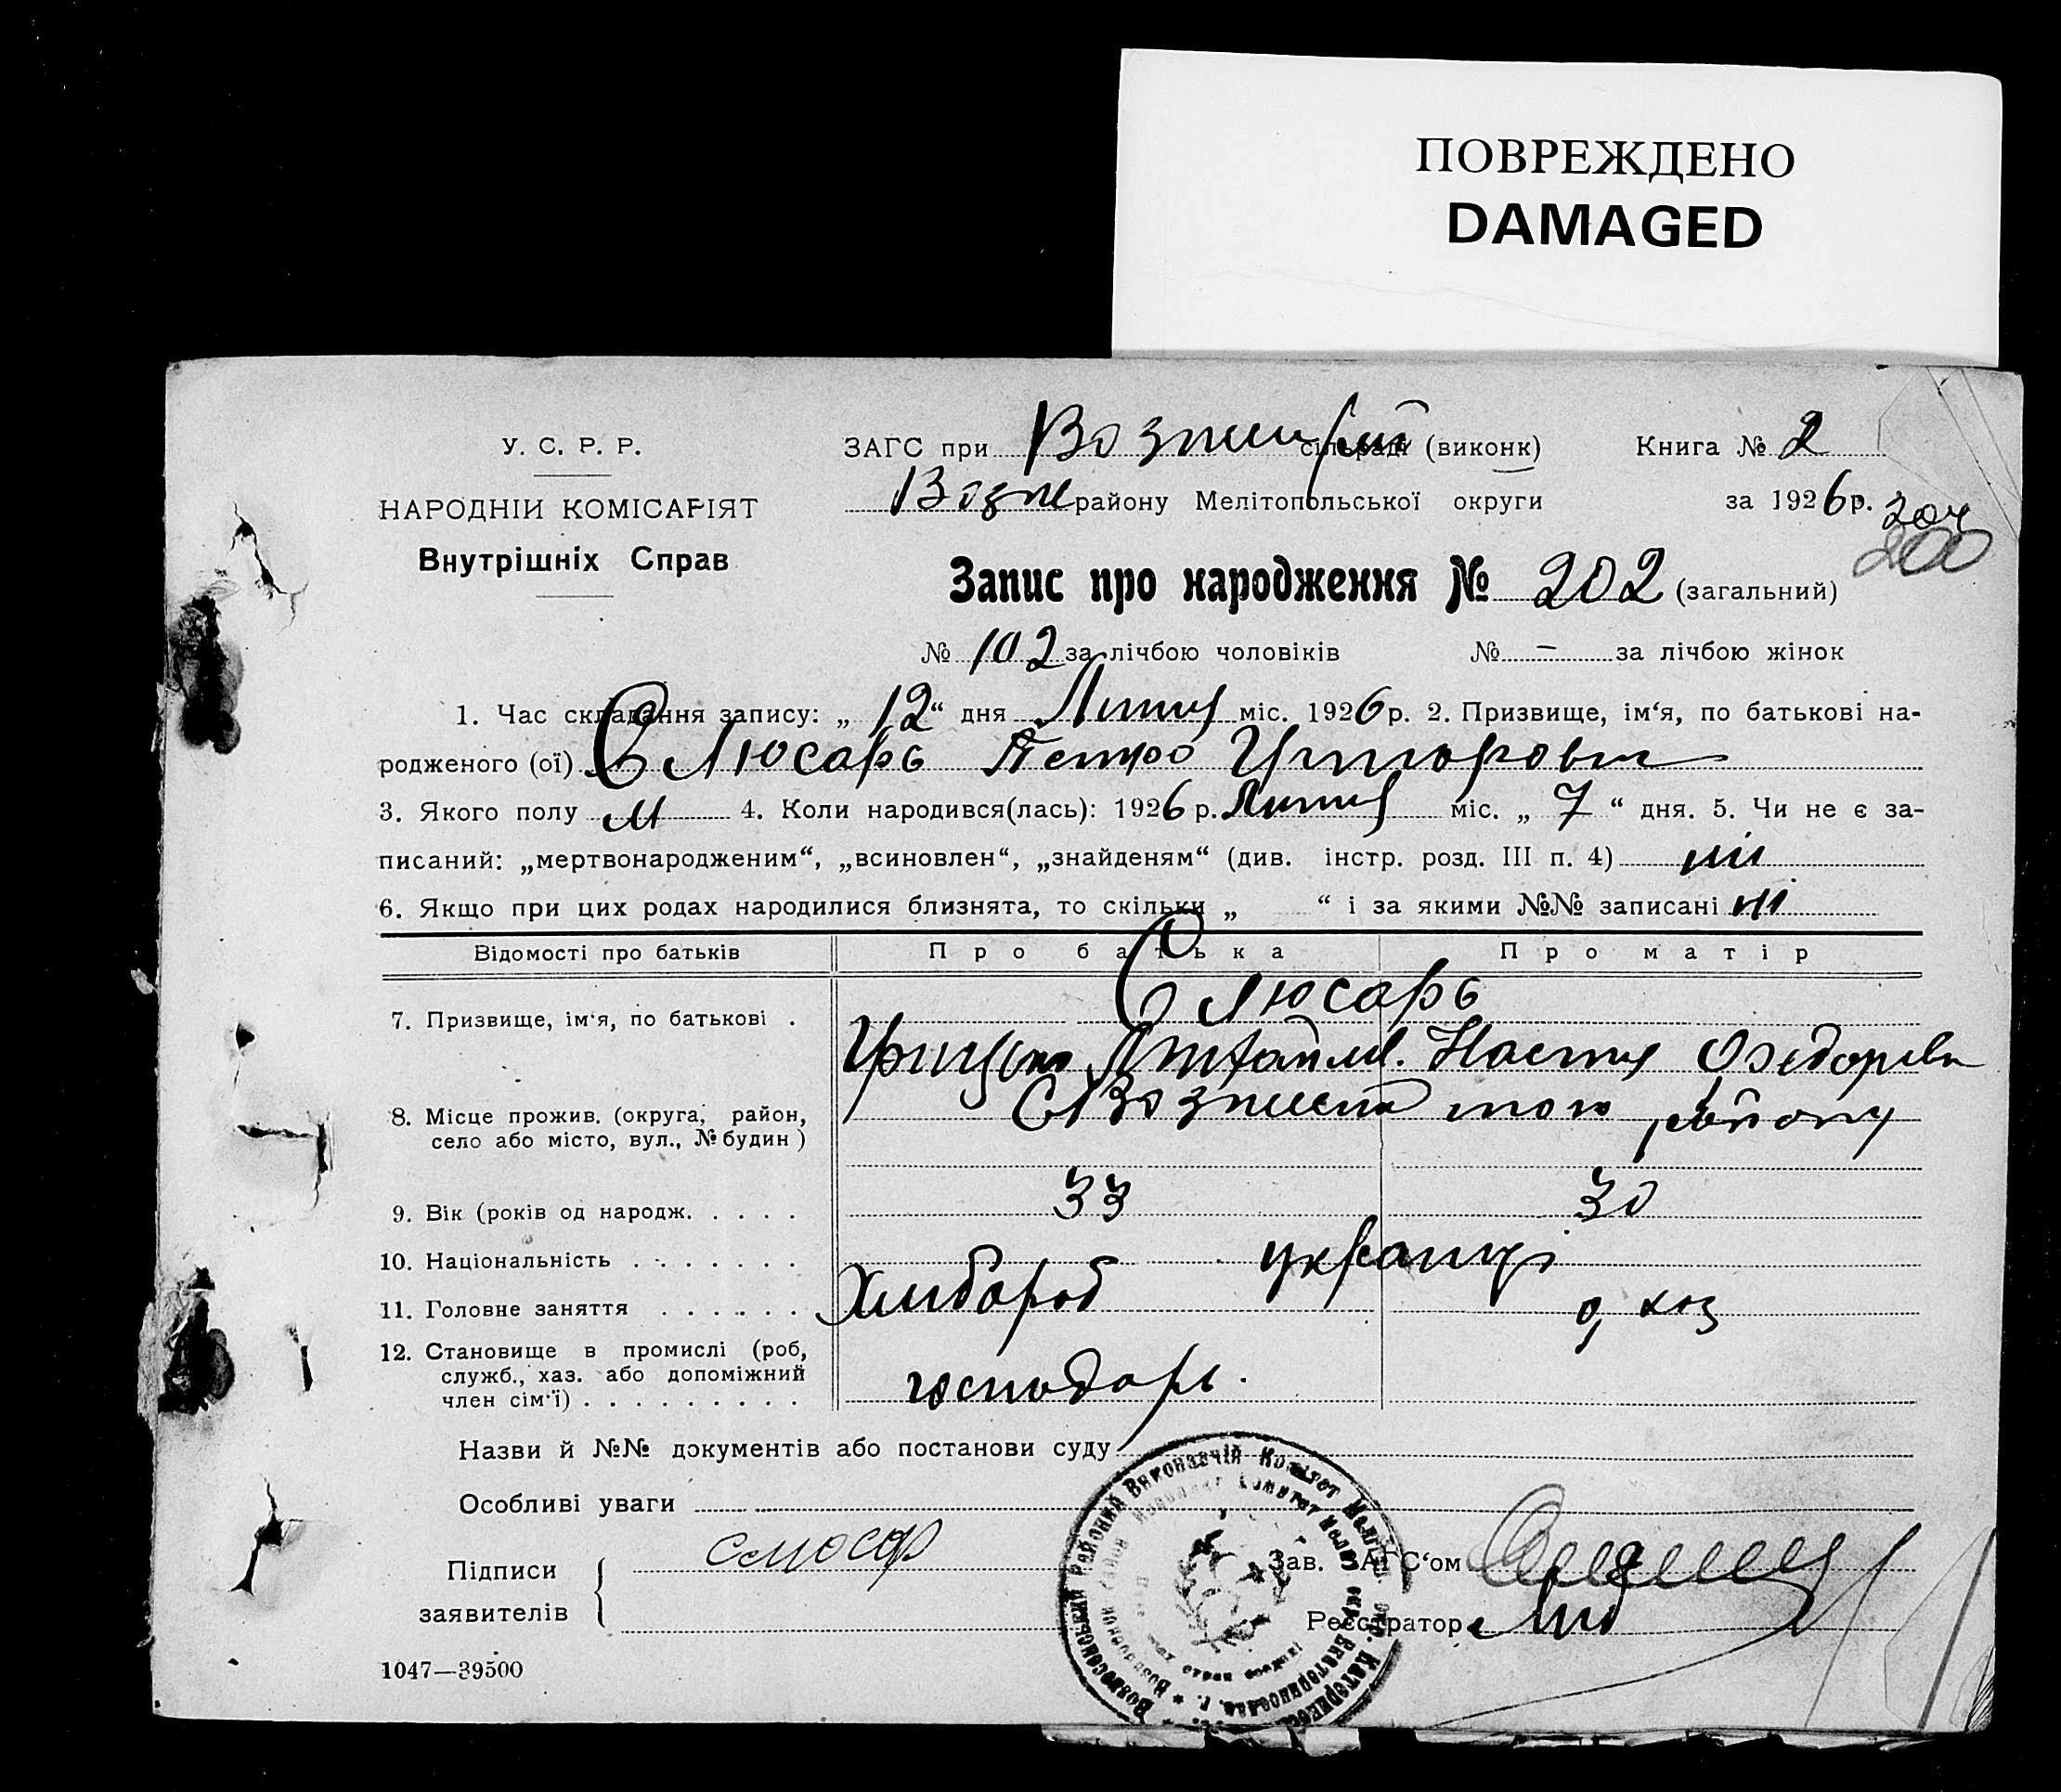 ПОВРЕЖДЕНО
DAMAGED
У. С. Р. Р.
НАРОДНІЙ КОМІСАРІЯТ
Внутрішніх Справ
ЗАГС при сільраді (виконк) Книга № 2
Возне району Мелітопольської округи за 1926 р. 204
200
Запис про народження № 202 (загальний)
№ 102 за лічбою чоловіків № – за лічбою жінок
1. Час складання запису: „ 12 “ дня Липня міс. 1926 р. 2. Призвище, ім‘я, по батькові на-
родженого (ої) Слюсарь Петро
3. Якого полу М 4. Коли народився(лась): 1926 р. Липня міс. „ 7 “ дня. 5. Чи не є за-
писаний: „мертвонародженим“, „всиновлен“, „знайденям“ (див. інстр. розд. III п. 4) ні
6. Якщо при цих родах народилися близнята, то скільки „ “ і за якими №№ записані ні
Відомості про батьків Про батька Про матір
7. Призвище, ім‘я, по батькові . Слюсарь
Настя
8. Місце прожив. (округа, район, того району
село або місто, вул., № будин )
9. Вік (років од народж. . . . . 33 30
10. Національність . . . . . . . українці
11. Головне заняття . . . . . . Хлібороб д хоз
12. Становище в промислі (роб,
служб., хаз. або допоміжний господарь.
член сім‘ї) . . . . . . . . .
Назви й №№ документів або постанови суду
Особливі уваги
Підписи Слюсар Зав. ЗАГС‘ом
заявителів Реєстратор
1047—39500